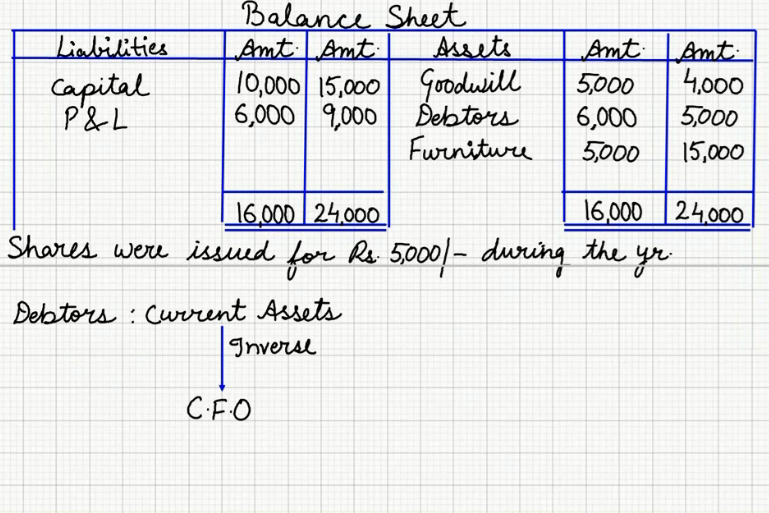 Balance Sheet
Liabilities Amt. Amt. Assets Amt. Amt.
Capital 10,000 15,000 Goodwill 5,000 4,000
P & L 6,000 9,000 Debtors 6,000 5,000
Furniture 5,000 15,000
16,000 24,000 16,000 24,000
Shares were issued for Rs. 5,000/- during the yr.
Debtors : Current Assets
Inverse
C.F.O